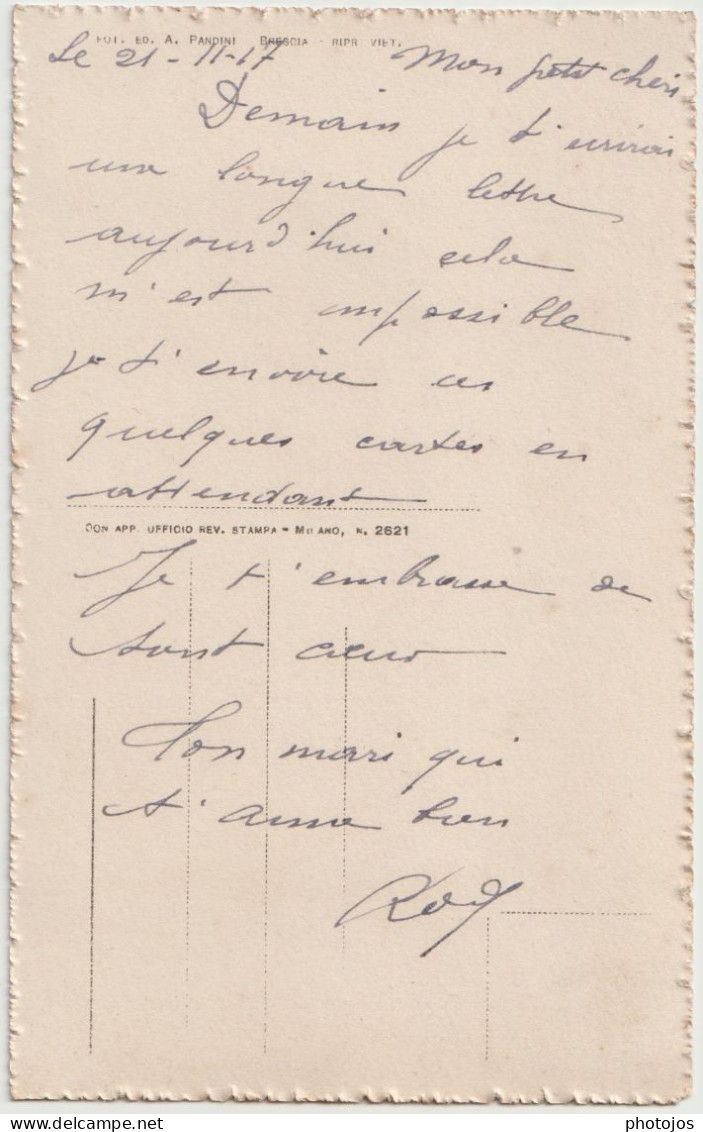 FOT. ED. A. PANDINI BRESCIA - RIPR. VIET.
Le 21-11-17 Mon petit chéri
Demain je t'écrirai
une longue lettre
aujourd'hui cela
m'est impossible
je t'envoie ces
quelques cartes en
attendant
CON APP. UFFICIO REV. STAMPA - MILANO, N. 2621
Je t'embrasse de
tout cœur
Ton mari qui
t'aime bien
photojos